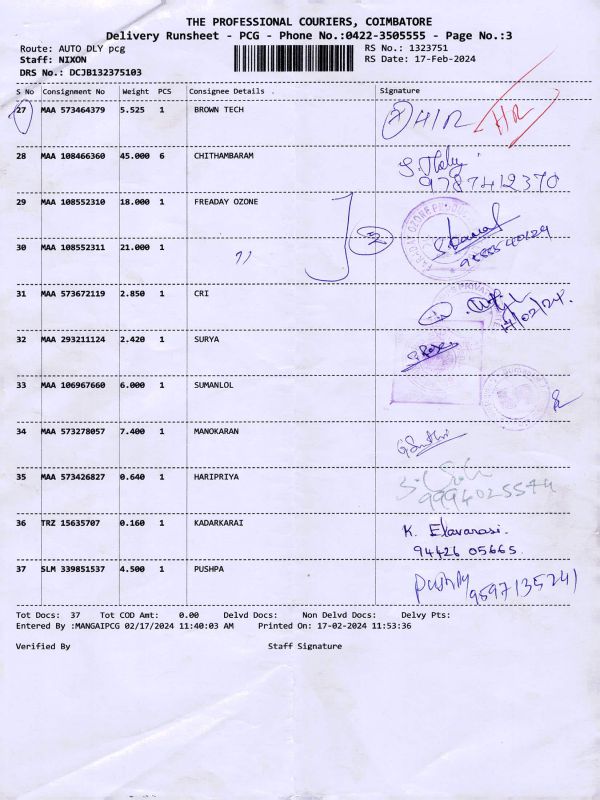 THE PROFESSIONAL COURIERS, COIMBATORE
Delivery Runsheet - PCG - Phone No.:0422-3505555 - Page No.:3
Route: AUTO DLY pcg RS No.: 1323751
Staff: NIXON RS Date: 17-Feb-2024
DRS No.: DCJB132375103
S No Consignment No Weight PCS Consignee Details Signature
27 MAA 573464379 5.525 1 BROWN TECH H/R HR
28 MAA 108466360 45.000 6 CHITHAMBARAM
9787412370
29 MAA 108552310 18.000 1 FREADAY OZONE 2
30 MAA 108552311 21.000 1 "
31 MAA 573672119 2.850 1 CRI
17/02/24.
32 MAA 293211124 2.420 1 SURYA
33 MAA 106967660 6.000 1 SUMANLOL
34 MAA 573278057 7.400 1 MANOKARAN
35 MAA 573426827 0.640 1 HARIPRIYA
36 TRZ 15635707 0.160 1 KADARKARAI K. Elavarasi.
94426 05665.
37 SLM 339851537 4.500 1 PUSHPA Pushpa 9597135241
Tot Docs: 37 Tot COD Amt: 0.00 Delvd Docs: Non Delvd Docs: Delvy Pts:
Entered By :MANGAIPCG 02/17/2024 11:40:03 AM Printed On: 17-02-2024 11:53:36
Verified By Staff Signature